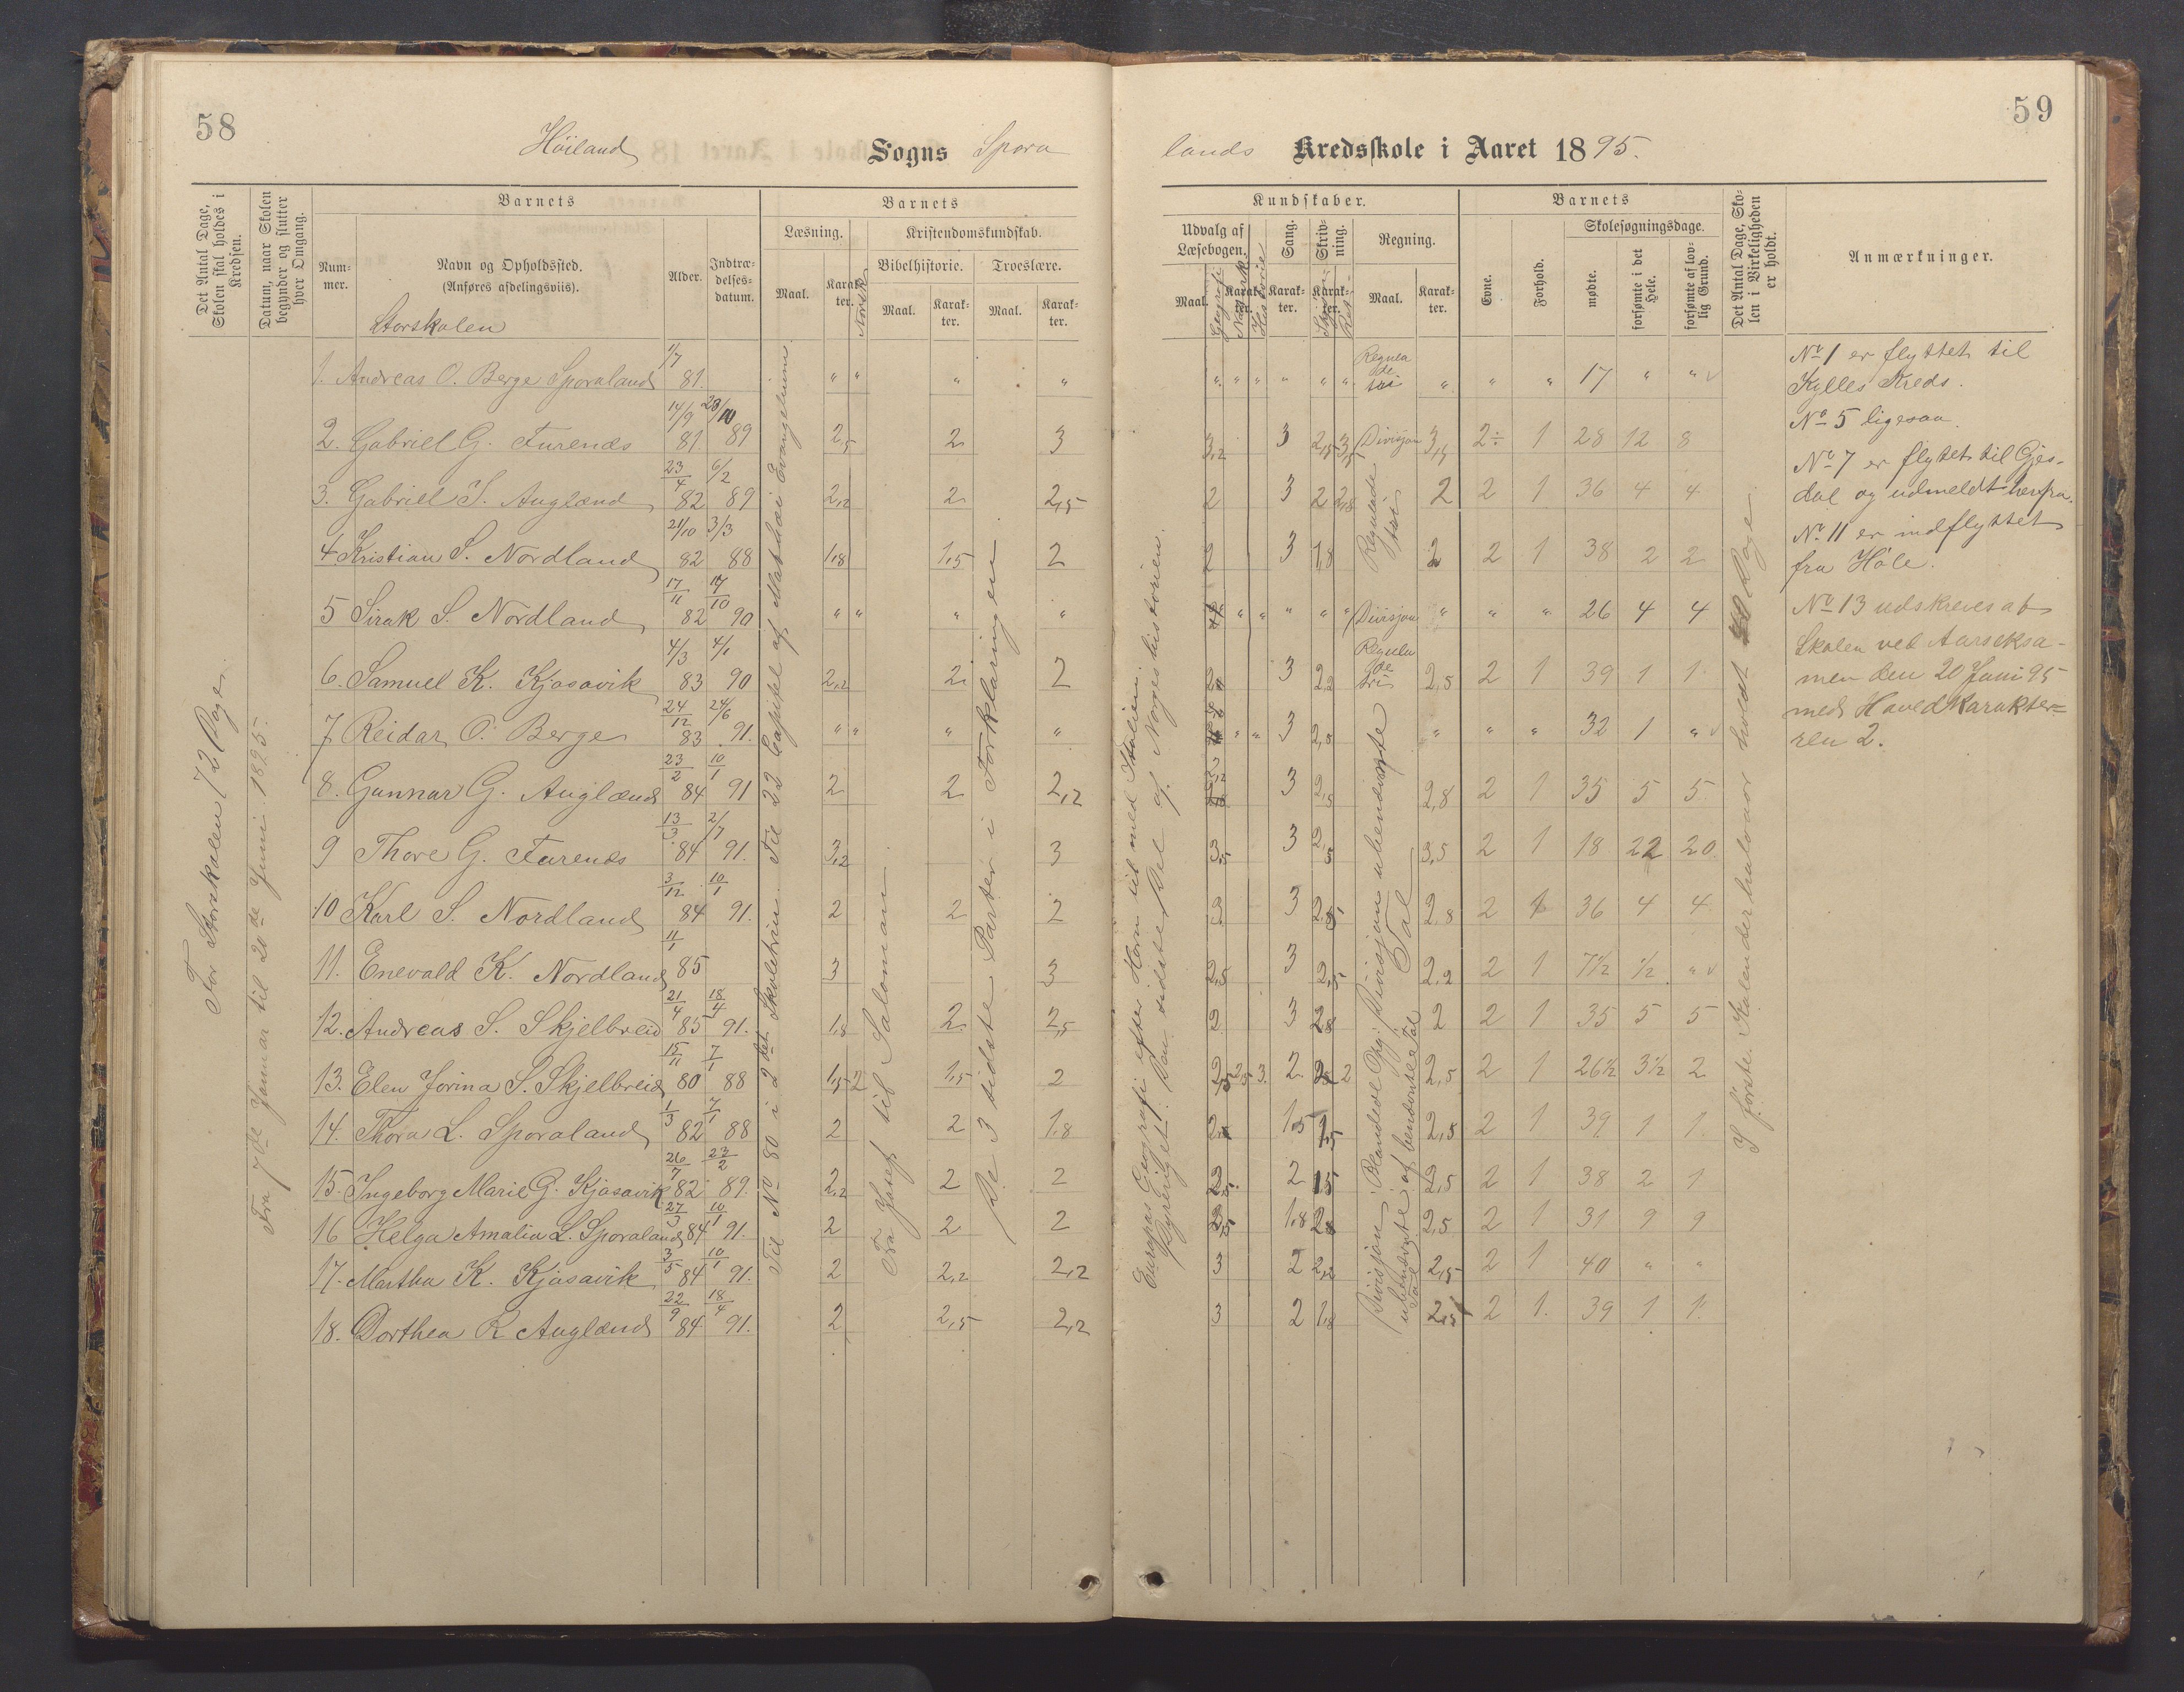 58
Höiland Sogns Spora
Det Antal Dage, Skolen skal holdes i Kredsen.
Datum, naar Skolen begynder og slutter hver Omgang.
Barnets
Nummer.
Navn og Opholdssted.
(Anføres afdelingsviis).
Storskolen
Alder.
Indtrædelsesdatum.
Barnets
Læsning.
Maal.
Karakter.
Norsk
Kristendomskundskab.
Bibelhistorie.
Maal.
Karakter.
Troeslære.
Maal.
Karakter.
For Storskolen 72 Dage.
Fra 7de Januar til 20de Juni 1895.
Til No 80 i 2det Skoletrin. Til 22 Capitel af Mathæi Evangelium
Fra Josef til Salomon
De 3 sidste Parter i Forklaringen
1. Andreas O. Berge Sporaland 1/7 81. " " " "
2. Gabriel G. Furenes 14/9 81 20/10 89 2,5 2 3
3. Gabriel S. Auglænd 23/4 82 6/2 89 2,2 2 2,5
4 Kristian S. Nordland 21/10 82 3/3 88 1,8 1,5 2
5 Sirak S. Nordland 17/11 82 17/10 90 " " " "
6. Samuel K. Kjosavik 4/3 83 4/1 90 2,2 2 2
7 Reidar O. Berge 24/12 83 24/6 91. " " " "
8. Gunnar G. Auglænd 23/2 84 10/1 91 2 2 2,2
9 Thore G. Furenes 13/3 84 2/7 91. 3,2 3
10 Karl S. Nordland 3/12 84 10/1 91. 2 2 2
11. Enevald K. Nordland 11/1 85 3 3
12. Andreas S. Skjelbreid 21/4 85 18/4 91. 1,8 2 2,5
13. Elen Jorina S. Skjelbreid 15/11 80 7/1 88 1,5 2 1,5 2
14. Thora L. Sporaland 1/3 82 7/1 88 2 2 1,8
15. Ingeborg Marie G. Kjosavik 26/7 82 23/2 89. 2,2 2 2
16 Helga Amalia L. Sporaland 27/3 84 10/1 91. 2 2 2
17. Martha K. Kjosavik 3/5 84 10/1 91. 2 2,2 2,2
18. Dorthea R Auglænd 22/9 84 18/4 91. 2 2,5 2,2
59
lands Kredsskole i Aaret 1895.
Kundskaber.
Udvalg af Læsebogen.
Maal.
Karakter.
Geografi
Naturk.
Historie
Sang.
Karakter.
Skrivning.
Karakter.
Regning.
Maal.
Karakter.
Barnets
Evne.
Forhold.
Skolesøgningsdage.
mødte.
forsømte i det Hele.
forsømte af lovlig Grund.
Det Antal Dage, Skolen i Virkeligheden er holdt.
Anmærkninger.
Europas Geografi efter Horn til med Italien.
Den sidste Del af Norgeshistorien
I første Kalenderhalvaar holdt Dage
" " " " " " Regula de tri " " " 17 " "
3,2 3 2,5 3,5 Divisjon 3,5 2÷ 1 28 12 8
2 3 2 2,8 Regulade tri 2 2 1 36 4 4
2 3 1,8 2 2 1 38 2 2
" " " " " Divisjon " " " 26 4 4
3 2,2 Regula de tri 2,5 2 1 39 1 1
" " 3 " " " 32 1 "
3 2,5 2,8 2 1 35 5 5
3,5 3 3,5 2 1 18 22 20.
3 3 2,8 2 1 36 4 4
2,5 3 2,5 2,2 2 1 7½ ½ "
2 3 2,8 2 2 1 35 5 5
2,5 2,5 3. 2 2 2,5 2 1 26½ 3½ 2
1,5 1,5 2,5 2 1 39 1 1.
2,5 2 1,5 2,5 2 1 38 2 1
1,8 2,8 2,5 2 1 31 9 9
3 2 2,2 2,5 2 1 40 " "
3 2 1,8 2,5 2 1. 39 1 1.
Divisjon ubenævnte Tal
Divisjon af benævnte Tal
No 1 er flyttet til
Kylles Kreds.
No 5 ligesaa.
No 7 er flytet til Gjes-
dal og udmeldt herfra.
No 11 er indflyttet
fra Höle.
No 13 udskreves af
Skolen ved Aarseksa-
men den 20 Juni 95
med Hovedkarakter-
ren 2.